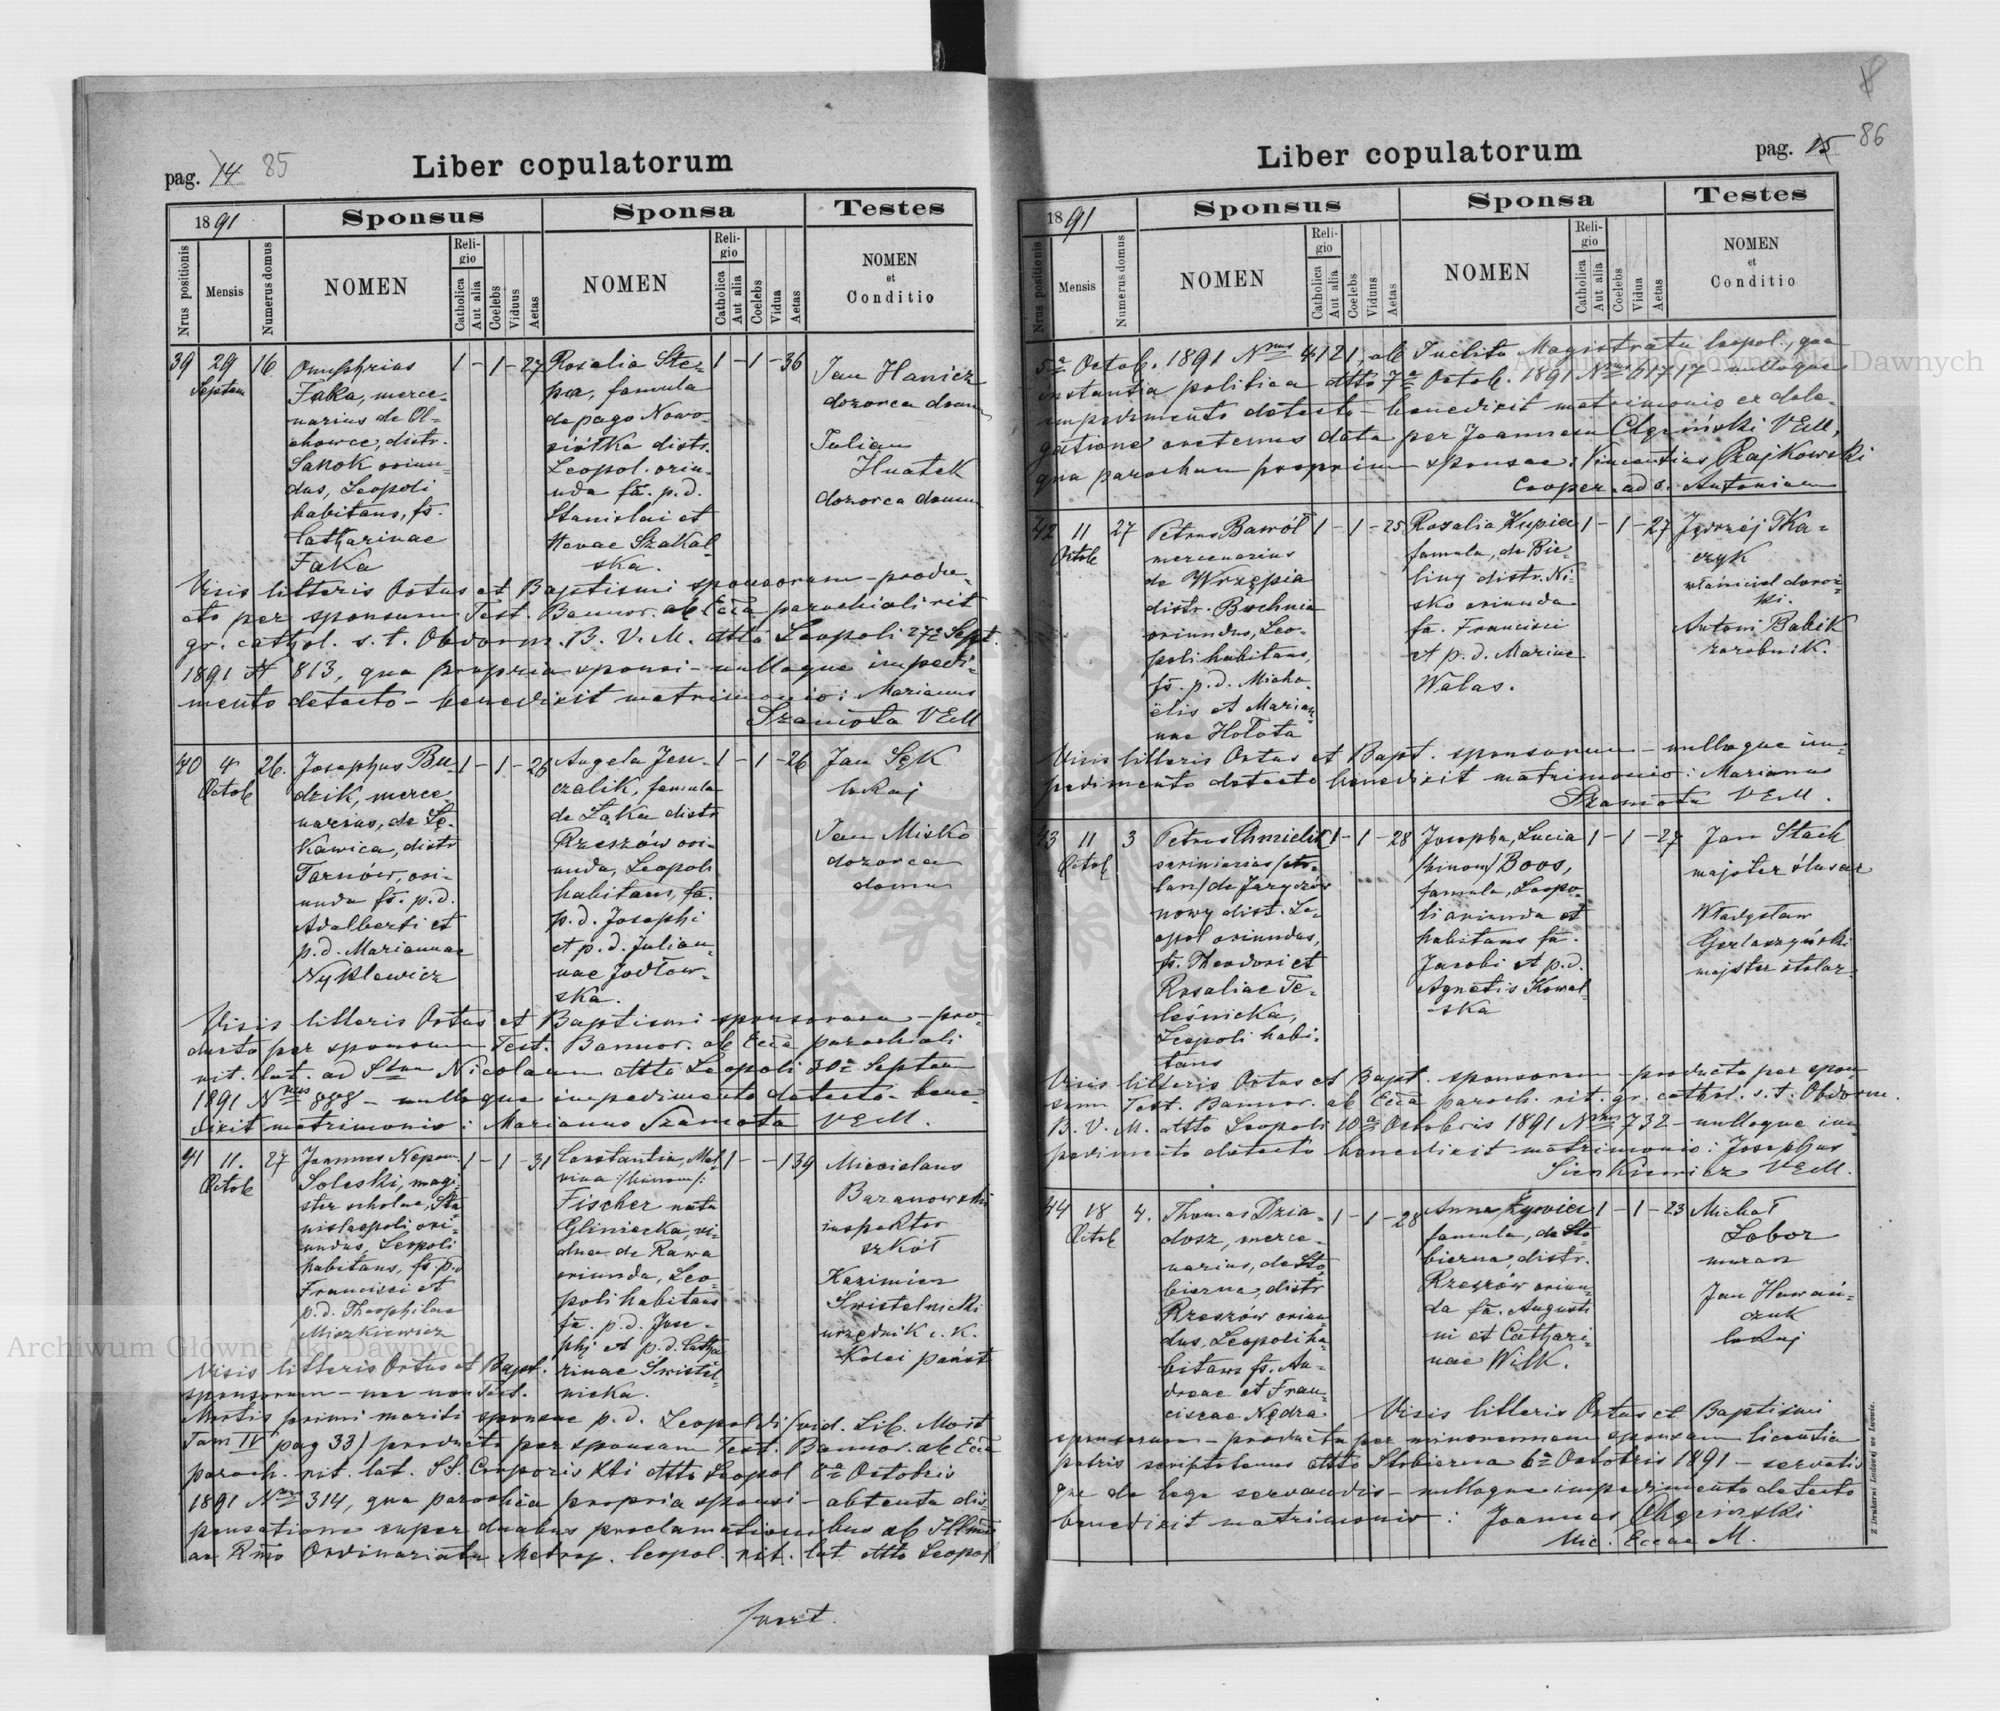 pag. 14 85
Liber copulatorum
1891
Sponsus
Sponsa
Testes
Nrus positionis
Mensis
Numerus domus
NOMEN
Religio
Catholica
Aut alia
Coelebs
Viduus
Aetas
NOMEN
Religio
Catholica
Aut alia
Coelebs
Vidua
Aetas
NOMEN
et
Conditio
39 29 Septem 16
Onuphrius
Faka, merce-
narius de Ol-
chowce, distr.
Sanok oriun-
dus, Leopoli
habitans, fs.
Catharinae
Faka
1 - 1 - 27
Rosalia Ste-
pa, famula
de pago Nowo-
siółka distr.
Leopol. oriu-
nda fa. p. d.
Stanislai et
Szakal-
ska.
1 - 1 - 36
Jan Hanicz
dozorca domu
Julian
Hnatek
dozorca domu
Visis litteris Ortus et Baptismi sponsorum - produ-
cto per sponsum Test. Bannor. ab Ecca parochiali rit
gr. cathol. s. t. Obdorm. B. V. M. dtto Leopoli 27a Sept.
1891 N 813, qua propria sponsi - nulloque impedi-
mento detecto - benedixit matrimonio: Marianus
Szamota VEM
40 4 Octob 26.
Josephus Bu-
dzik, merce
narius, de Łę-
kawica, distr
Tarnów, ori-
undus fs. p. d.
Adalberti et
p. d. Mariannae
Nyklewicz
1 - 1 - 26
Angela Jen-
czalik, famula
de Łąka distr
Rzeszów ori-
unda, Leopoli
habitans, fa.
p. d. Josephi
et p. d. Julian-
nae Jodłow-
ska.
1 - 1 - 26
Jan Sęk
lokaj
Jan Misko
dozorca
domu
Visis litteris Ortus et Baptismi sponsorum - pro-
ducto per sponsum Test. Bannor. ab Ecca parochiali
rit. lat. ad Stum Nicolaum dtto Leopoli 30a Septem
1891 Nrus 898 - nulloque impedimento detecto - bene-
dixit matrimonio: Marianus Szamota VEM.
41 11. Octob 27
Joannes Nepom.
Soleski, magi-
ster scholae, Sta
nislaopoli ori-
undus, Leopoli
habitans, fs p. d
Francisci et
p. d. Theophilae
Miszkiewicz
1 - 1 - 31
Constantia, Mal
vina /:binom:/
Fischer nata
Gliniecka, vi-
dua de Rawa
oriunda, Leo-
poli habitans
fa. p. d. Jose-
phi et p. d. Catha
rinae Swistel-
nicka.
1 - - 1 39
Miecislaus
Baranowski
inspektor
szkół
Kazimierz
Świstelnicki
urzędnik c. k.
kolei państ
Visis litteris Ortus et Bapt.
sponsorum - nec non Test.
Mortis primi mariti sponsae p. d. Leopoldi /vid. Lib. Mort
Tom IV pag 33/ producto per sponsam Test. Bannor. ab Ecca
paroch. rit. lat. SS. Corporis Xti dtto Leopol 8a Octobris
1891 Nrus 314, qua parochia propria sponsi - obtenta dis-
pensatione super duabus proclamationibus ab Illmo
ac Rmo Ordinariatu Metrop. leopol. rit. lat. dtto Leopol
/vert.
Liber copulatorum
pag. 15 86
1891
Sponsus
Sponsa
Testes
Nrus positionis
Mensis
Numerus domus
NOMEN
Religio
Catholica
Aut alia
Coelebs
Viduus
Aetas
NOMEN
Religio
Catholica
Aut alia
Coelebs
Vidua
Aetas
NOMEN
et
Conditio
5a Octob. 1891 Nrus 4121, ab Inclito Magistratu leopol., qua
instantia politica dtto 7a Octob. 1891 Nrus 61717 - nulloque
impedimento detecto - benedixit matrimonio ex dele-
gatione oretenus data per Joannem Chęciński VEM,
qua parochum proprium sponsae: Vincentius Rajkowski
Cooper. ad s. Antonium
42 11 Octob 27
Petrus Bawół
mercenarius
de Wrzępia
distr. Bochnia
oriundus, Leo-
poli habitans,
fs. p. d. Micha-
ëlis et Marian-
nae Hołota
1 - 1 - 25
Rozalia Kupiec
famula, de Bie-
liny distr. Ni-
sko oriunda
fa. Francisci
et p. d. Mariae
Walas.
1 - 1 - 27
Jędrzéj Tka-
czyk
właściciel doroż-
ki.
Antoni Babik
zarobnik.
Visis litteris Ortus et Bapt. sponsorum - nulloque im-
pedimento detecto benedixit matrimonio: Marianus
Szamota VEM.
43 11 Octob 3
Petrus Chmielik
scriniarius /sto-
larz/ de Jaryczów
nowy dist. Le-
opol oriundus,
fs. Theodori et
Rosaliae Te-
leśnicka,
Leopoli habi-
tans
1 - 1 - 28
Josepha, Lucia
/binom/ Boos,
famula, Leopo-
li oriunda et
habitans fa.
Jacobi et p. d.
Agnetis Kowal-
ska
1 - 1 - 27
Jan Stach
majster ślusar
Władysław
majster stolar.
Visis litteris Ortus et Bapt. sponsorum - producto per spon-
sum Test. Bannor. ab Ecca paroch. rit. gr. cathol. s. t. Obdorm.
B. V. M. dtto Leopoli 10a Octobris 1891 Nrus 732 - nulloque im-
pedimento detecto benedixit matrimonio: Josephus
Sienkiewicz VEM.
44 18 Octob 4.
Thomas Dzia-
dosz, merce-
narius, de Sto
bierna, distr
Rzeszów oriun-
dus, Leopoli ha-
bitans fs. An-
dreae et Fran-
ciscae Nędza
1 - 1 - 28
Anna Żywiec
famula, de Sto
bierna, distr.
Rzeszów oriun-
da fa. Augusti
ni et Cathari-
nae Wilk.
1 - 1 - 23
Michał
Łobor
murarz
Jan Hawań-
czuk
lokaj
Visis litteris Ortus et Baptismi
sponsorum - producta per minorennem sponsam licentia
patris scriptotenus dtto Stobierna 6a Octobris 1891 - servatis
que de lege servandis - nulloque impedimento detecto
benedixit matrimonio: Joannes Chęciński
Vic. Eccae M.
Z Drukarni Ludowej we Lwowie.
Archiwum Główne Akt Dawnych
Archiwum Główne Akt Dawnych